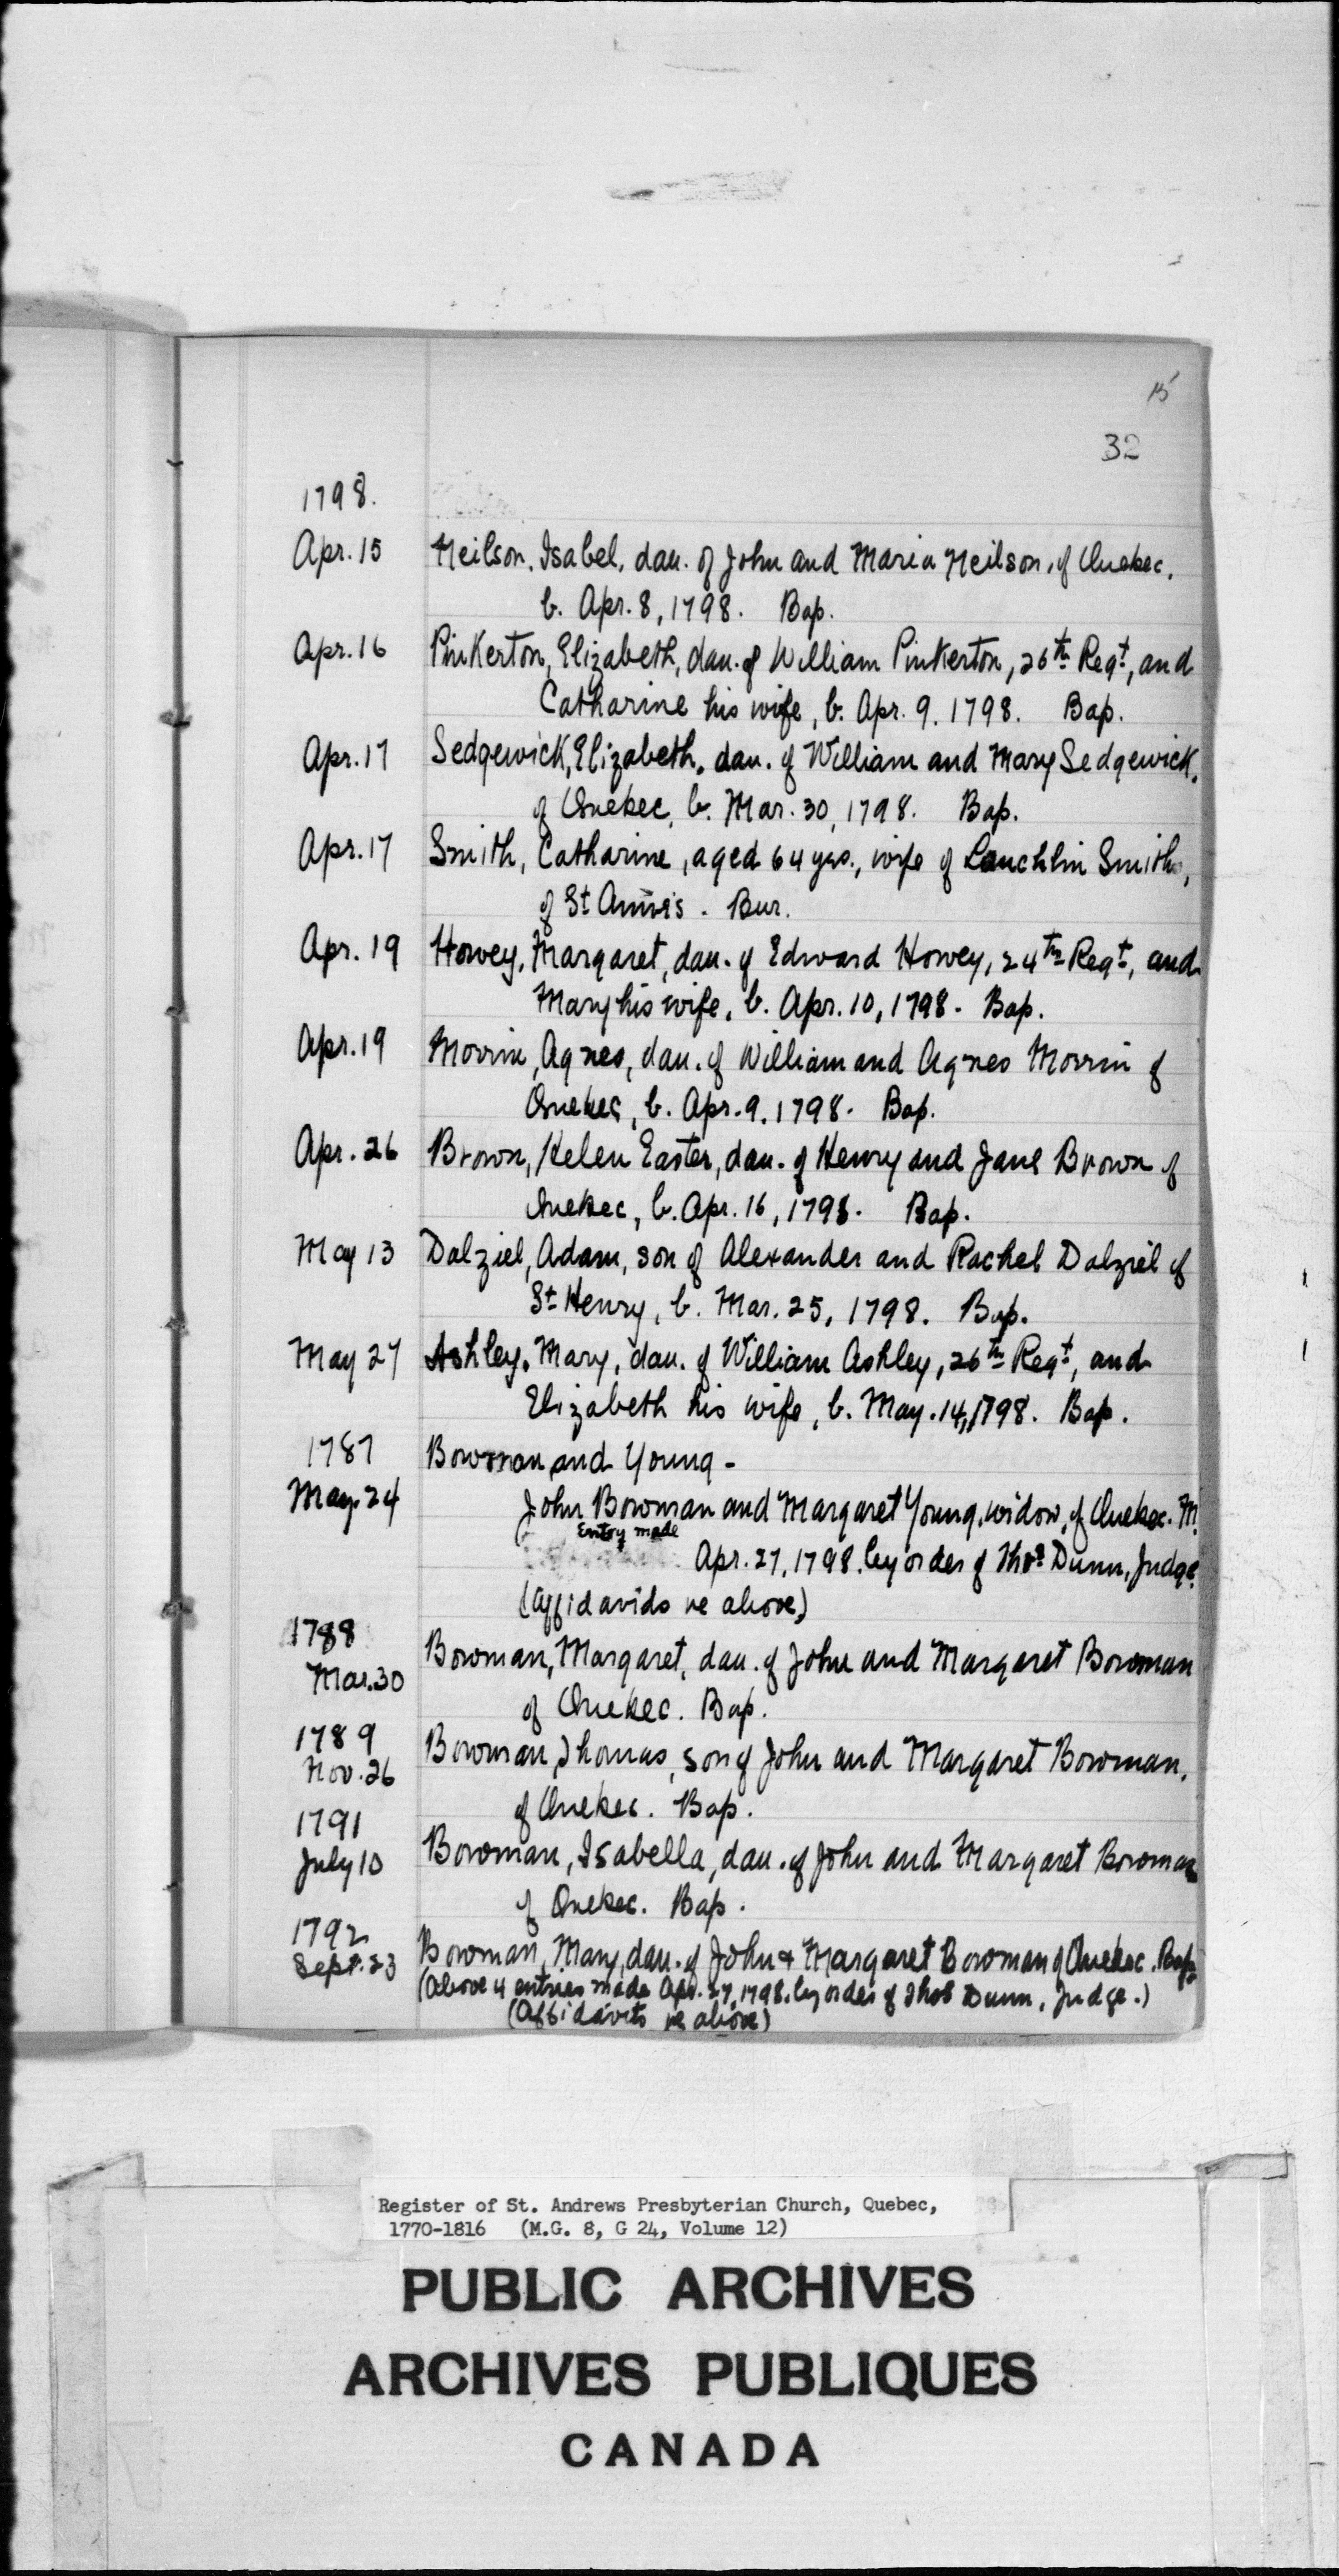 15
32
1798.
Apr. 15 Neilson, Isabel, dau. of John and Maria Neilson, of Quebec,
b. Apr. 8, 1798. Bap.
Apr. 16 Pinkerton, Elizabeth, dau. of William Pinkerton, 26th Regt, and
Catharine his wife, b. Apr. 9. 1798. Bap.
Apr. 17 Sedgewick, Elizabeth, dau. of William and Mary Sedgewick,
of Quebec, b. Mar. 30, 1798. Bap.
Apr. 17 Smith, Catharine, aged 64 yrs., wife of Lauchlin Smith,
of St Annes. Bur.
Apr. 19 Howey, Margaret, dau. of Edward Howey, 24th Regt, and
Mary his wife, b. Apr. 10, 1798. Bap.
Apr. 19 Morrin, Agnes, dau. of William and Agnes Morrin of
Quebec, b. Apr. 9. 1798. Bap.
Apr. 26 Brown, Helen Easter, dau. of Henry and Jane Brown of
Quebec, b. Apr. 16, 1798. Bap.
May 13 Dalziel, Adam, son of Alexander and Rachel Dalziel of
St Henry, b. Mar. 25, 1798. Bap.
May 27 Ashley, Mary, dau. of William Ashley, 26th Regt, and
Elizabeth his wife, b. May. 14, 1798. Bap.
1787 Bowman and Young -
May. 24 John Bowman and Margaret Young, widow, of Quebec. M.
Entry made
Apr. 27, 1798. by order of Thos Dunn, Judge.
(Affidavids re above)
1788 Bowman, Margaret, dau. of John and Margaret Bowman
Mar. 30 of Quebec. Bap.
1789 Bowman, Thomas, son of John and Margaret Bowman,
Nov. 26 of Quebec. Bap.
1791 Bowman, Isabella, dau. of John and Margaret Bowman
July 10 of Quebec. Bap.
1792 Bowman, Mary, dau. of John & Margaret Bowman of Quebec. Bap.
Sept. 23 (Above 4 entries made Apr. 27, 1798. by order of Thos Dunn, Judge.)
(Affidavits re above)
Register of St. Andrews Presbyterian Church, Quebec,
1770-1816 (M.G. 8, G 24, Volume 12)
PUBLIC ARCHIVES
ARCHIVES PUBLIQUES
CANADA